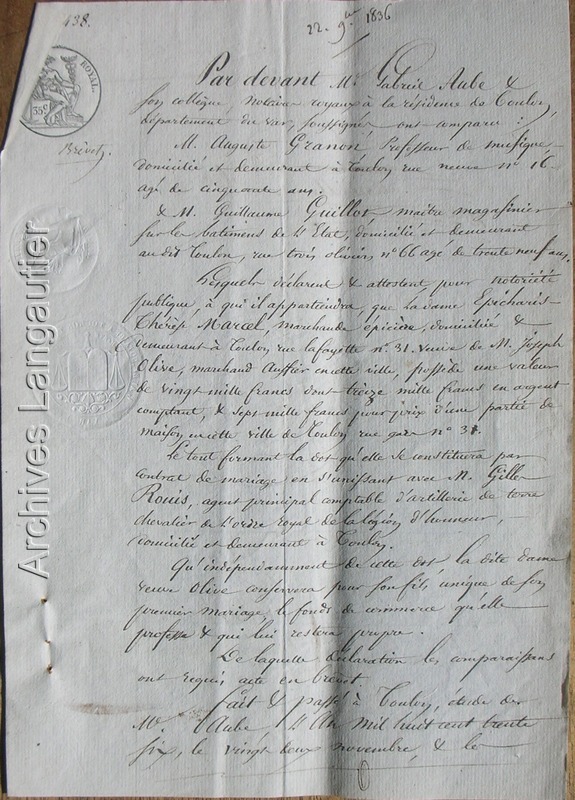 438.
22. 9bre 1836
ROYAL.
35c
Brevet.
Par devant Me Gabriel Aube &
son collègue, notaires royaux à la résidence de Toulon,
département du var, soussignés ont comparu :
M. Auguste Granon, Professeur de musique
domicilié et demeurant à Toulon rue neuve n° 16
agé de cinquante ans.
& M. Guillaume Guillot, maître magasinier
sur les batimens de l'Etat, domicilié et demeurant
au dit Toulon, rue trois oliviers n° 66 agé de trente neuf ans.
Lesquels déclarent & attestent pour notoriété
publique, à qui il appartiendra, que la dame Epicharis
Thérèse Marcel, marchande épicière, domiciliée &
demeurant à Toulon rue lafayette n° 31. veuve de M. Joseph
Olive, marchand Auffier en cette ville, possède une valeur
de vingt mille francs dont treize mille francs en argent
comptant, & sept mille francs pour prix d'une partie de
maison, en cette ville de Toulon rue n° 31.
Le tout formant la dot qu'elle se constituera par
contrat de mariage en s'unissant avec M. Gilles
Rouis, agent principal comptable d'artillerie de terre
chevalier de l'ordre royal de la légion d'honneur,
domicilié et demeurant à Toulon.
Qu'indépendamment de cette dot la dite dame
veuve Olive conservera pour son fils unique de son
premier mariage, le fonds de commerce qu'elle
professe & qui lui restera propre.
De laquelle déclaration les comparaissans
ont requis acte en brevet.
Fait & passé à Toulon, étude de
Me Aube l'An mil huit cent trente
six, le vingt deux novembre, & le
Archives Langautier